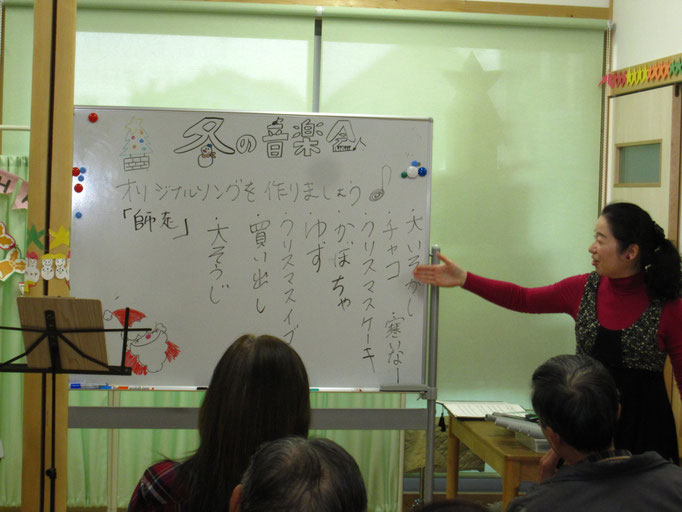 冬の音楽会
オリジナルソングを作りましょう
「師走」
・大いそがし
・チャコ 寒いなー
・クリスマスケーキ
・かぼちゃ
・ゆず
・クリスマスイブ
・買い出し
・大そうじ